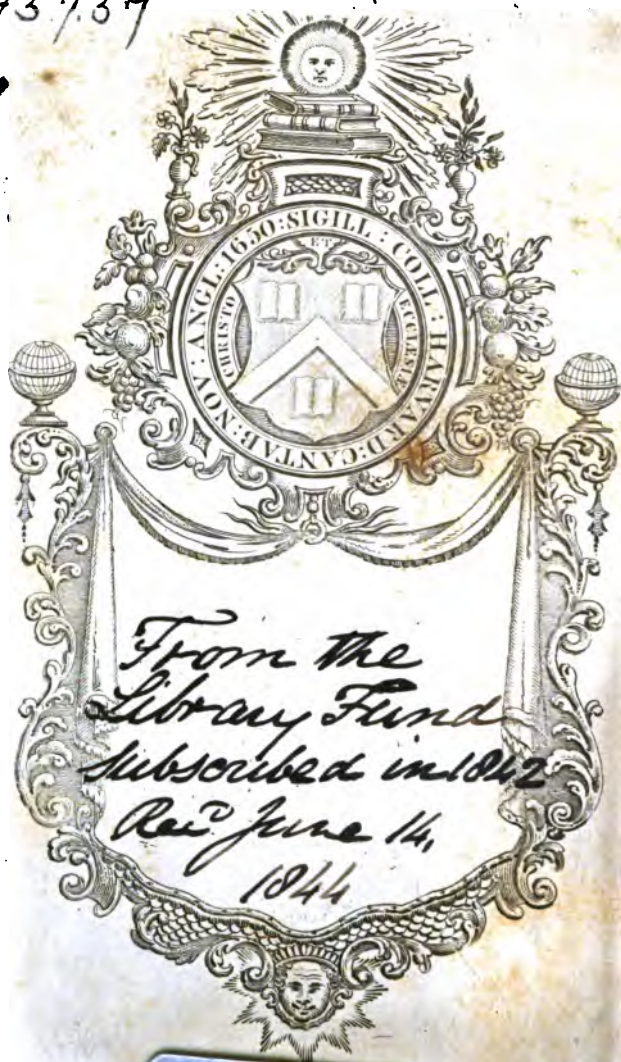 SIGILL : COLL : HARVARD : CANTAB : NOV : ANGL : 1650 :
ET
CHRISTO
ECCLESIÆ
From the
Library Fund
subscribed in 1842
Rec^d June 14,
1844